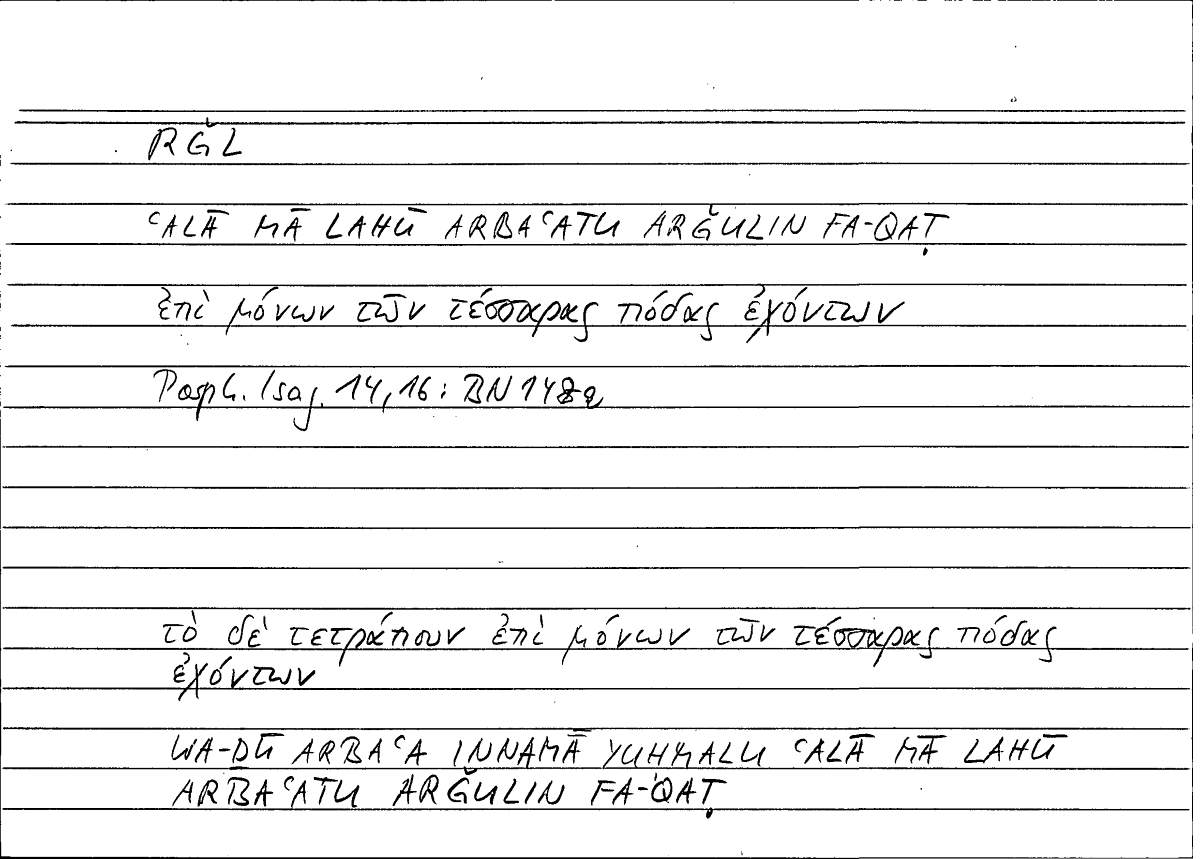 RĞL
ʿALĀ MĀ LAHŪ ARBAʿATU ARĞULIN FA-QAṬ
ἐπὶ μόνων τῶν τέσσαρας πόδας ἐχόντων
Porph. Isag. 14,16: BN 148a
τὸ δὲ τετράπουν ἐπὶ μόνων τῶν τέσσαρας πόδας
ἐχόντων
WA-DŪ ARBAʿA INNAMĀ YUHMALU ʿALĀ MĀ LAHŪ
ARBAʿATU ARĞULIN FA-QAṬ